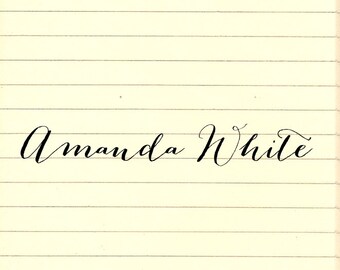 Amanda White